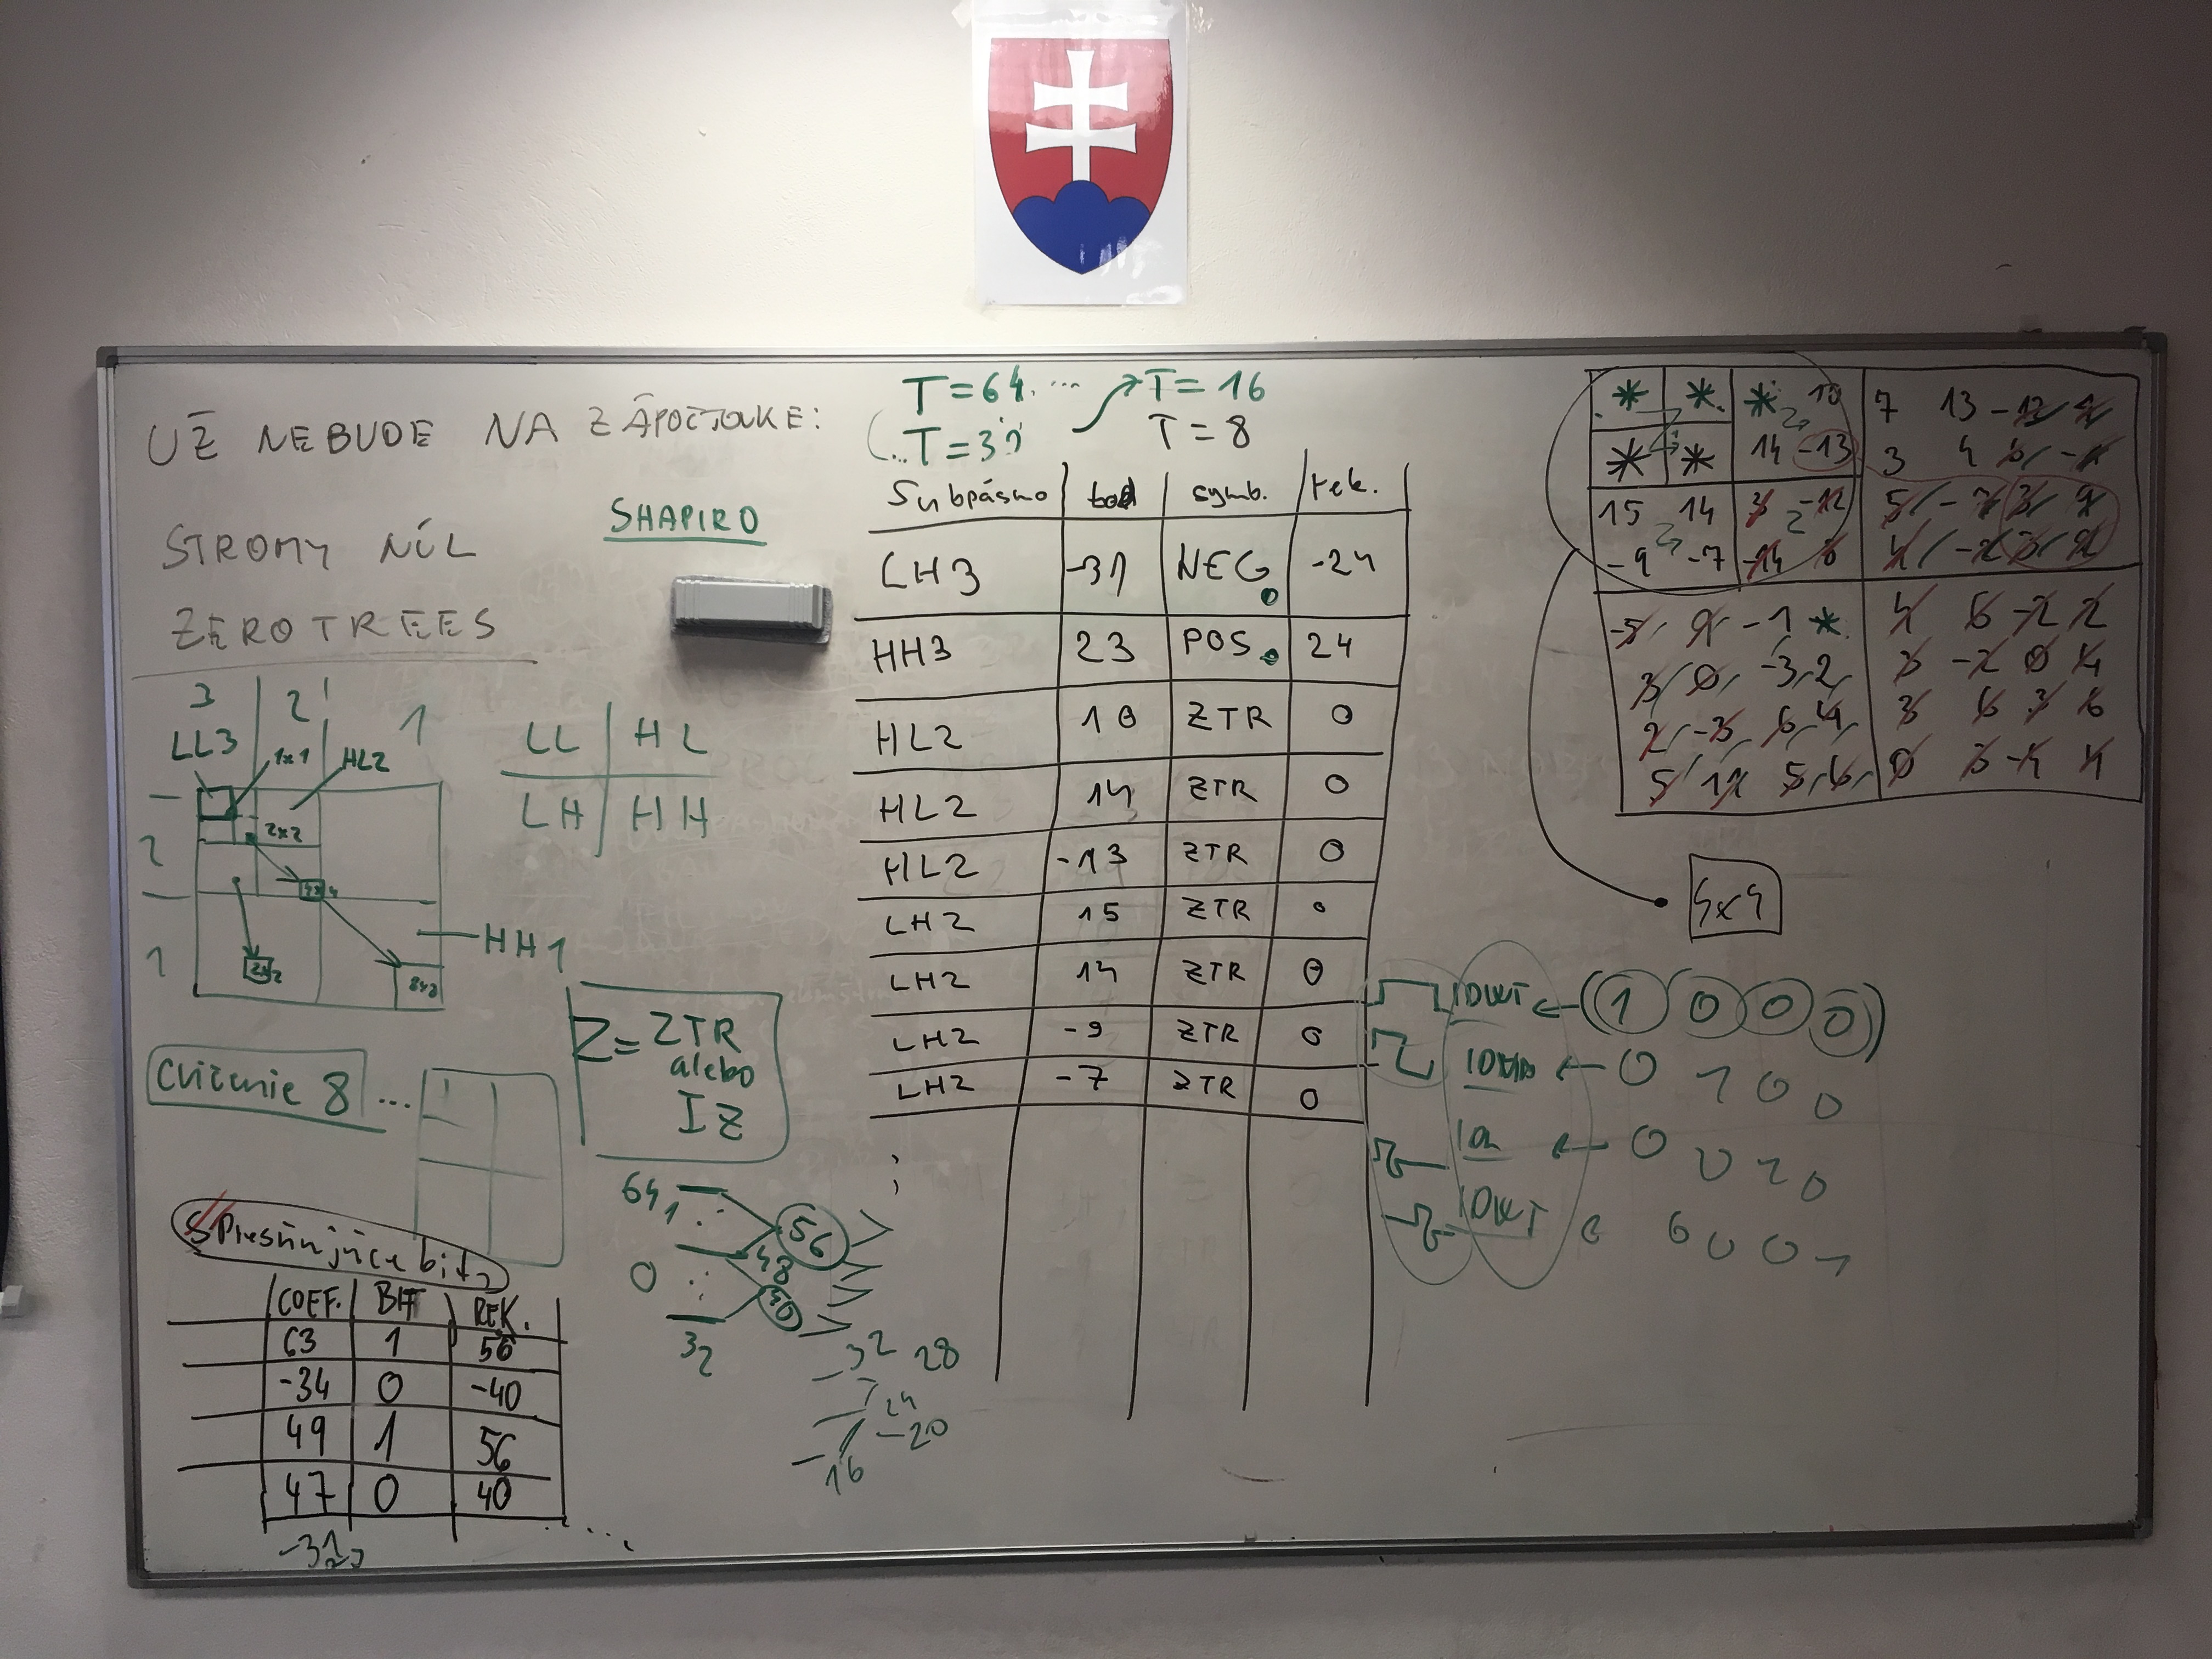 UŽ NEBUDE NA ZÁPOČTOVKE:
STROMY NÚL
ZEROTREES
SHAPIRO
T=64. ... T=16
T=8
Subpásmo symb. rek.
LH3 -31 NEG. -24
HH3 23 POS. 24
HL2 10 ZTR 0
HL2 14 ZTR 0
HL2 -13 ZTR 0
LH2 15 ZTR 0
LH2 14 ZTR 0
LH2 -9 ZTR 0
LH2 -7 ZTR 0
3 2 1
LL3 1x1 HL2
2x2
2
1
2x2
HH1
LL HL
LH HH
Cvičenie 8 ...
Z= ZTR
alebo
IZ
64
56
48
0
32
32 28
24
20
16
Spresňujúce bity
COEF. BIT REK.
63 1 56
-34 0 -40
49 1 56
47 0 40
* * * 10 7 13 -12
* * 14 -13 3 4 6
15 14 3 -12 5 -7 3 9
-9 -7 -14 8 4 -2 3 2
-5 9 -1 * 4 6 -2 2
3 0 -3 2 3 -2 0 4
2 -3 6 -4 3 6 3 6
5 11 5 6 0 3 -4 4
4x4
IDWT ← (1 0 0 0)
← 0 1 0 0
← 0 0 1 0
IDWT ← 0 0 0 1